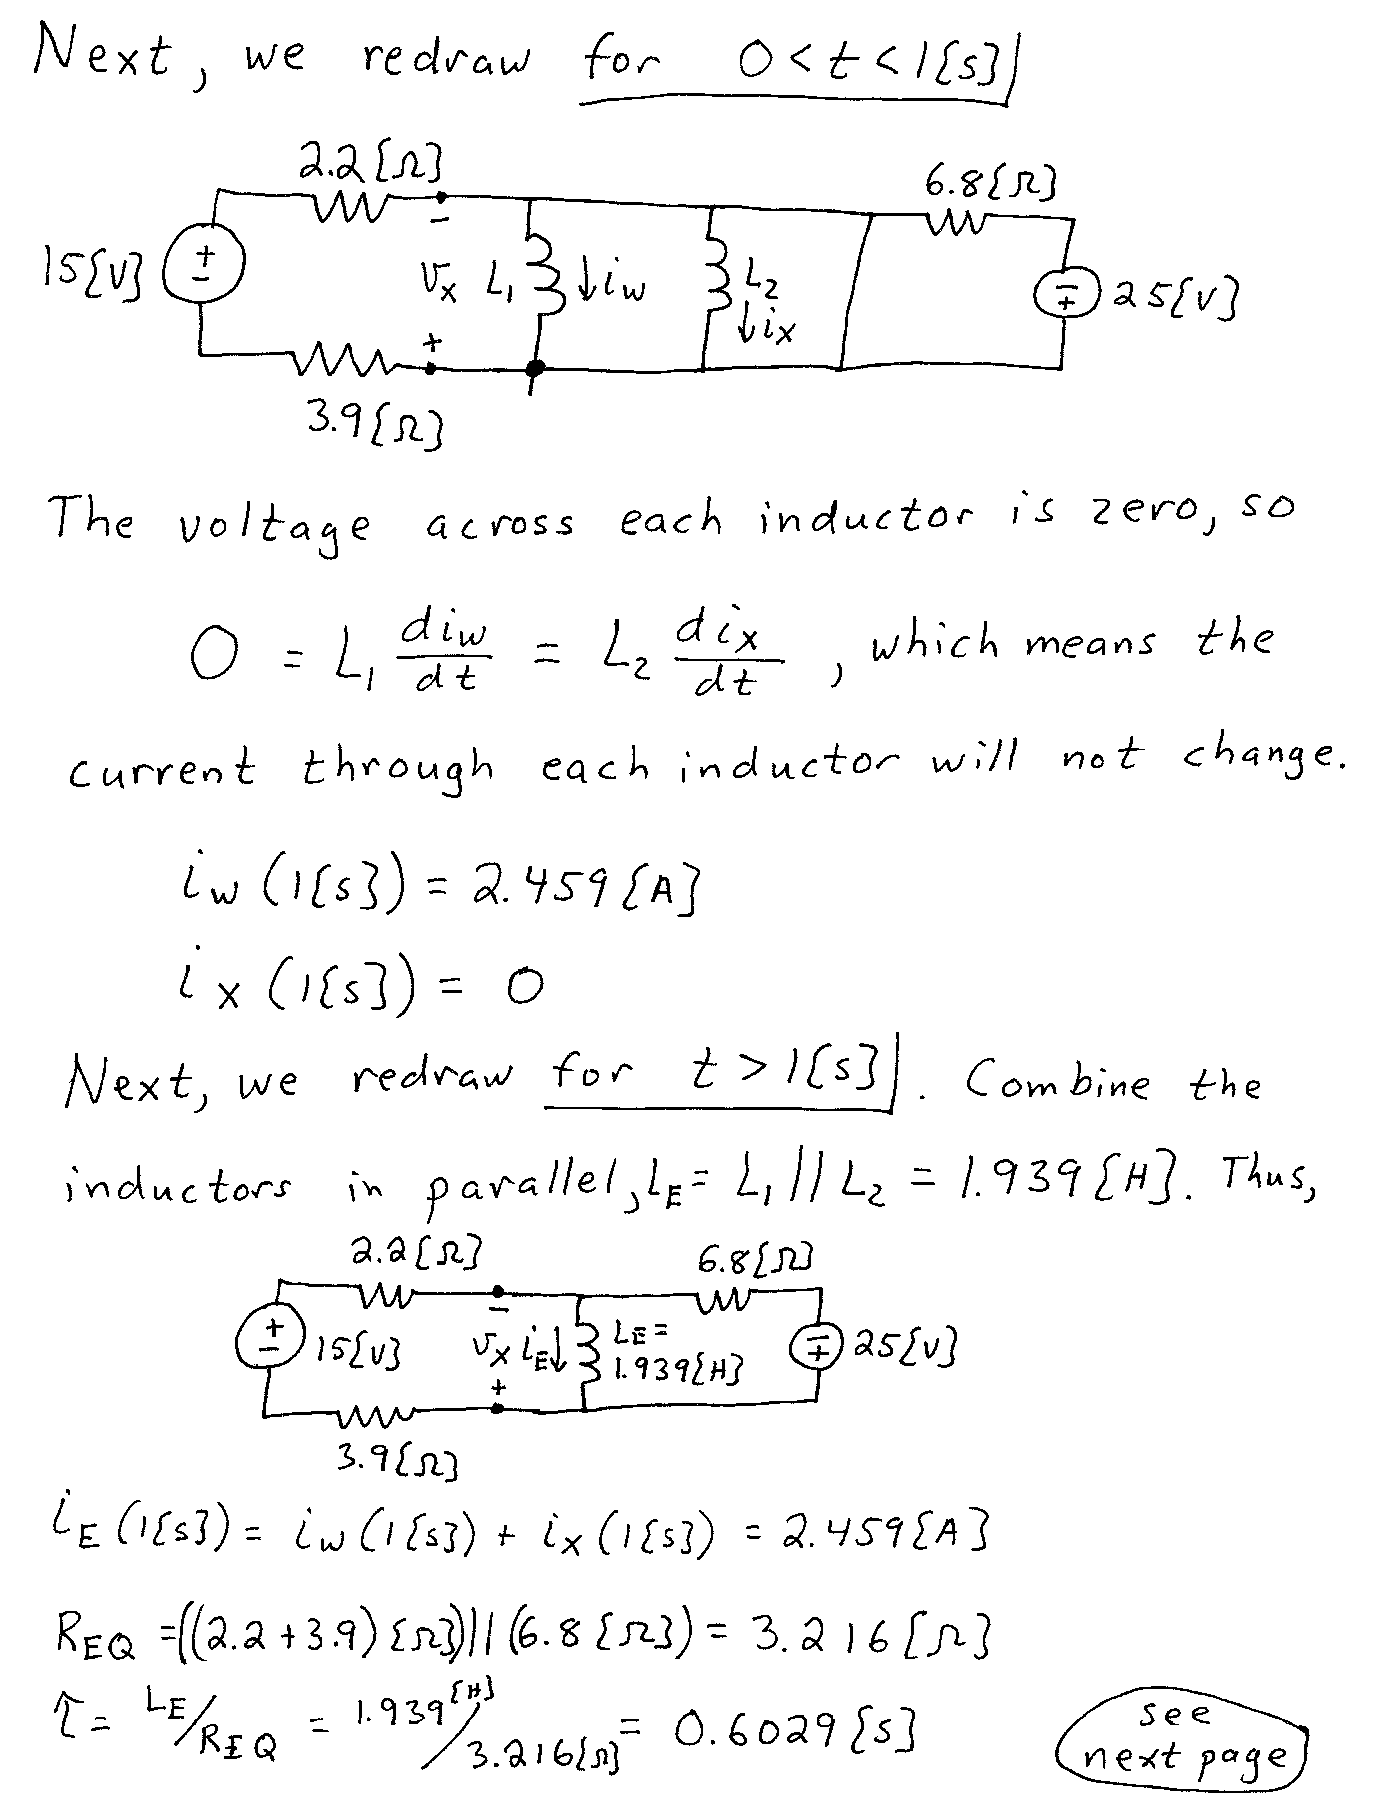 Next, we redraw for 0<t<1[s]
2.2[Ω]
6.8[Ω]
15[V] + - - v_x + L_1 ↓i_w L_2 ↓i_x - + 25[V]
3.9[Ω]
The voltage across each inductor is zero, so
0 = L_1 di_w/dt = L_2 di_x/dt , which means the
current through each inductor will not change.
i_w (1[s]) = 2.459[A]
i_x (1[s]) = 0
Next, we redraw for t>1[s]. Combine the
inductors in parallel, L_E = L_1 || L_2 = 1.939[H]. Thus,
2.2[Ω] 6.8[Ω]
+ - 15[V] - v_x + i_E↓ L_E = 1.939[H] - + 25[V]
3.9[Ω]
i_E (1[s]) = i_w (1[s]) + i_x (1[s]) = 2.459[A]
R_EQ = ((2.2+3.9)[Ω]) || (6.8[Ω]) = 3.216[Ω]
τ = L_E/R_EQ = 1.939[H]/3.216[Ω] = 0.6029[s]
see
next page